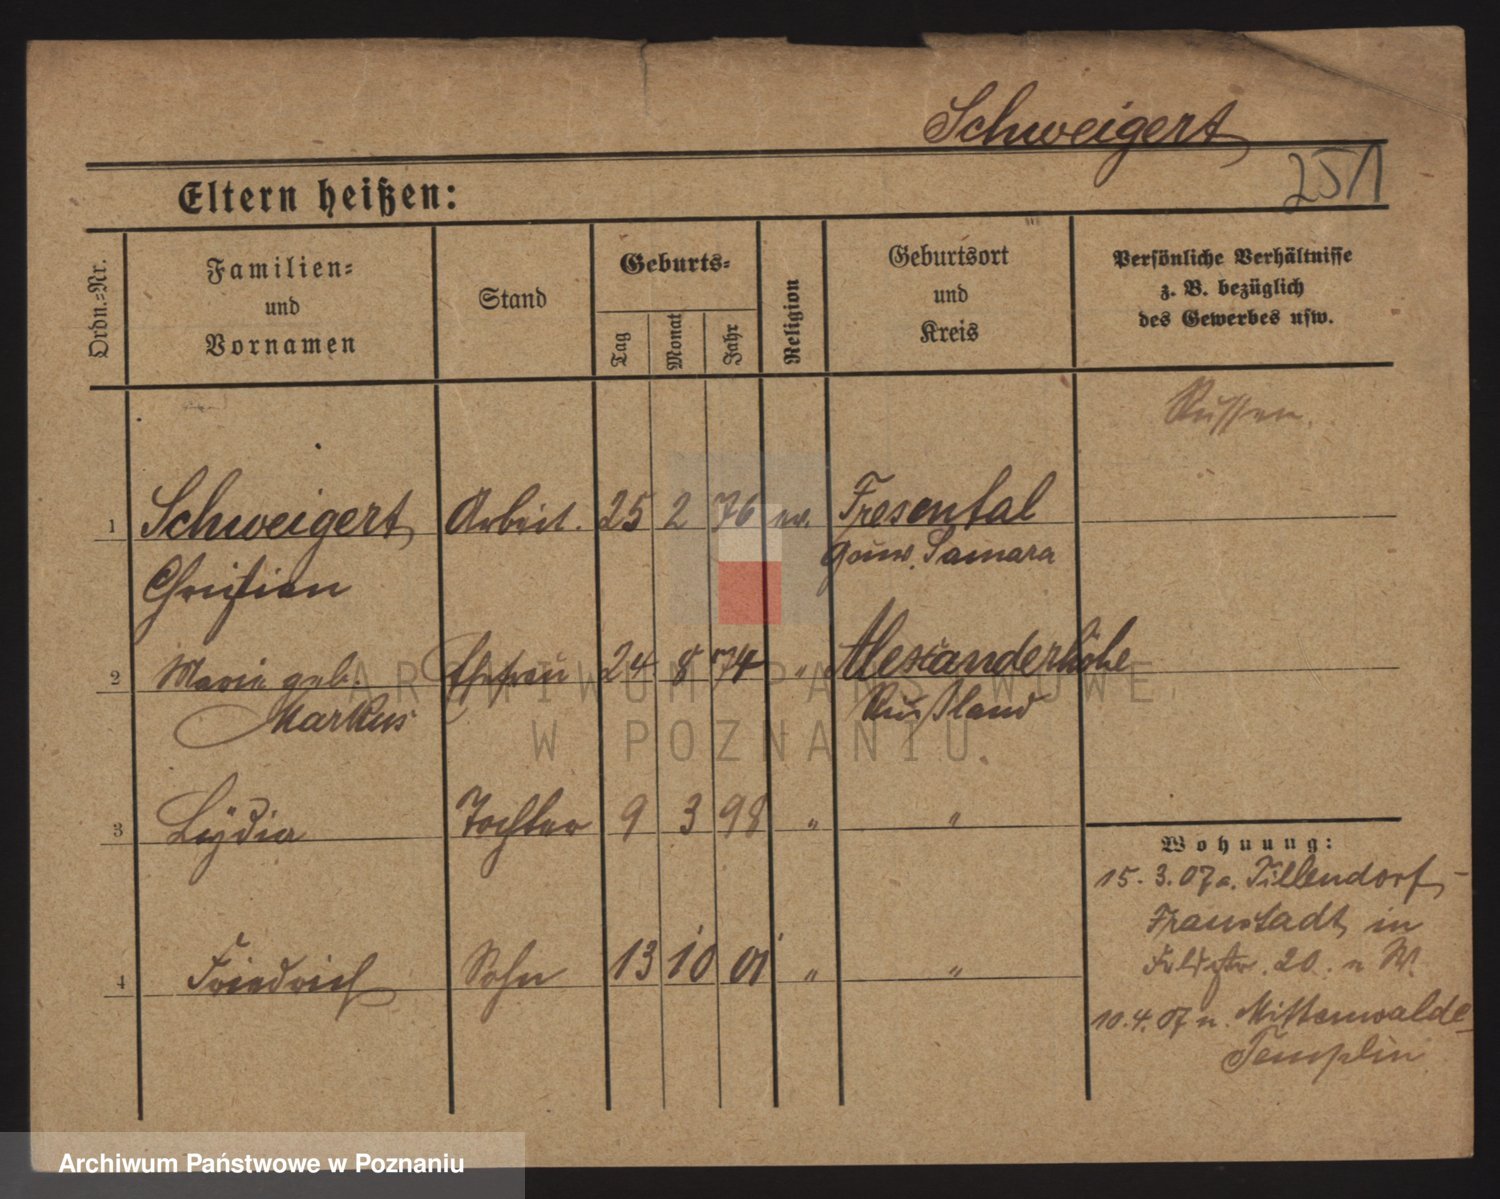 Schweigert
251
Eltern heißen:
Ordn.=Nr.
Familien=
und
Vornamen
Stand
Geburts=
Tag
Monat
Jahr
Religion
Geburtsort
und
Kreis
Persönliche Verhältnisse
z. B. bezüglich
des Gewerbes usw.
Russen.
1 Schweigert Arbeit. 25 2 76 ev. Fresental
Christian Gouv. Samara
2 Marie geb. Ehefrau 24 8 74 " Alexanderhöhe
Markus Rußland
3 Lydia Tochter 9 3 98 " "
Wohnung:
15. 3. 07 a. Tillendorf,
Fraustadt, in
20. W.
4 Friedrich Sohn 13 10 01 " "
10. 4. 07 n. Mittenwalde
Templin
ARCHIWUM PAŃSTWOWE
W POZNANIU
Archiwum Państwowe w Poznaniu